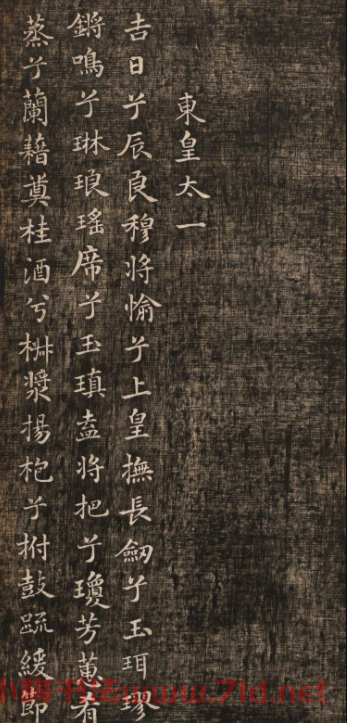 東皇太一
吉日兮辰良穆将愉兮上皇撫長劒兮玉珥璆
鏘鳴兮琳琅瑤席兮玉瑱盍将把兮瓊芳蕙肴
蒸兮蘭藉奠桂酒兮椒漿揚枹兮拊鼓疏緩節
www.7ld.net